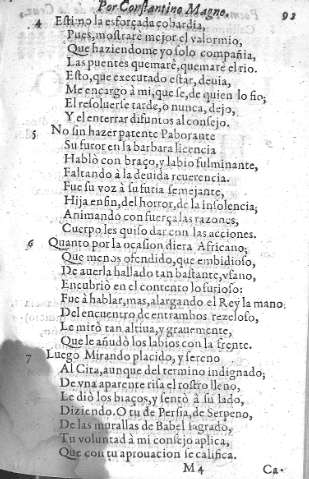 Por Constantino Magno. 92
4 Esti no la esforçada cobardia,
Pues, mostrarè mejor el valor mio,
Que haziendome yo solo compañia,
Las puentes quemarè, quemarè el rio.
Esto, que executado estar, deuia,
Me encargo à mi, que se, de quien lo fio;
El resoluerse tarde, o nunca, dejo,
Y el enterrar difuntos al consejo.
5 No sin hazer patente Paborante
Su furor en la barbara licencia
Hablò con braço, y labio fulminante,
Faltando à la deuida reuerencia.
Fue su voz à su furia semejante,
Hija en fin, del horror, de la insolencia;
Animando con fuerça las razones,
Cuerpo les quiso dar con las acciones.
6 Quanto por la ocasion diera Africano;
Que menos ofendido, que embidioso,
De auerla hallado tan bastante, vfano,
Encubriò en el contento lo furioso:
Fue à hablar, mas, alargando el Rey la mano
Del encuentro de entrambos rezeloso,
Le mirò tan altiua, y grauemente,
Que le añudò los labios con la frente.
7 Luego Mirando placido, y sereno
Al Cita, aunque del termino indignado;
De vna aparente risa el rostro lleno,
Le diò los braços, y sentò à su lado,
Diziendo. O tu de Persia, de Serpeno,
De las murallas de Babel sagrado,
Tu voluntad à mi consejo aplica,
Que con tu aprouacion se califica.
M 4 Ca-